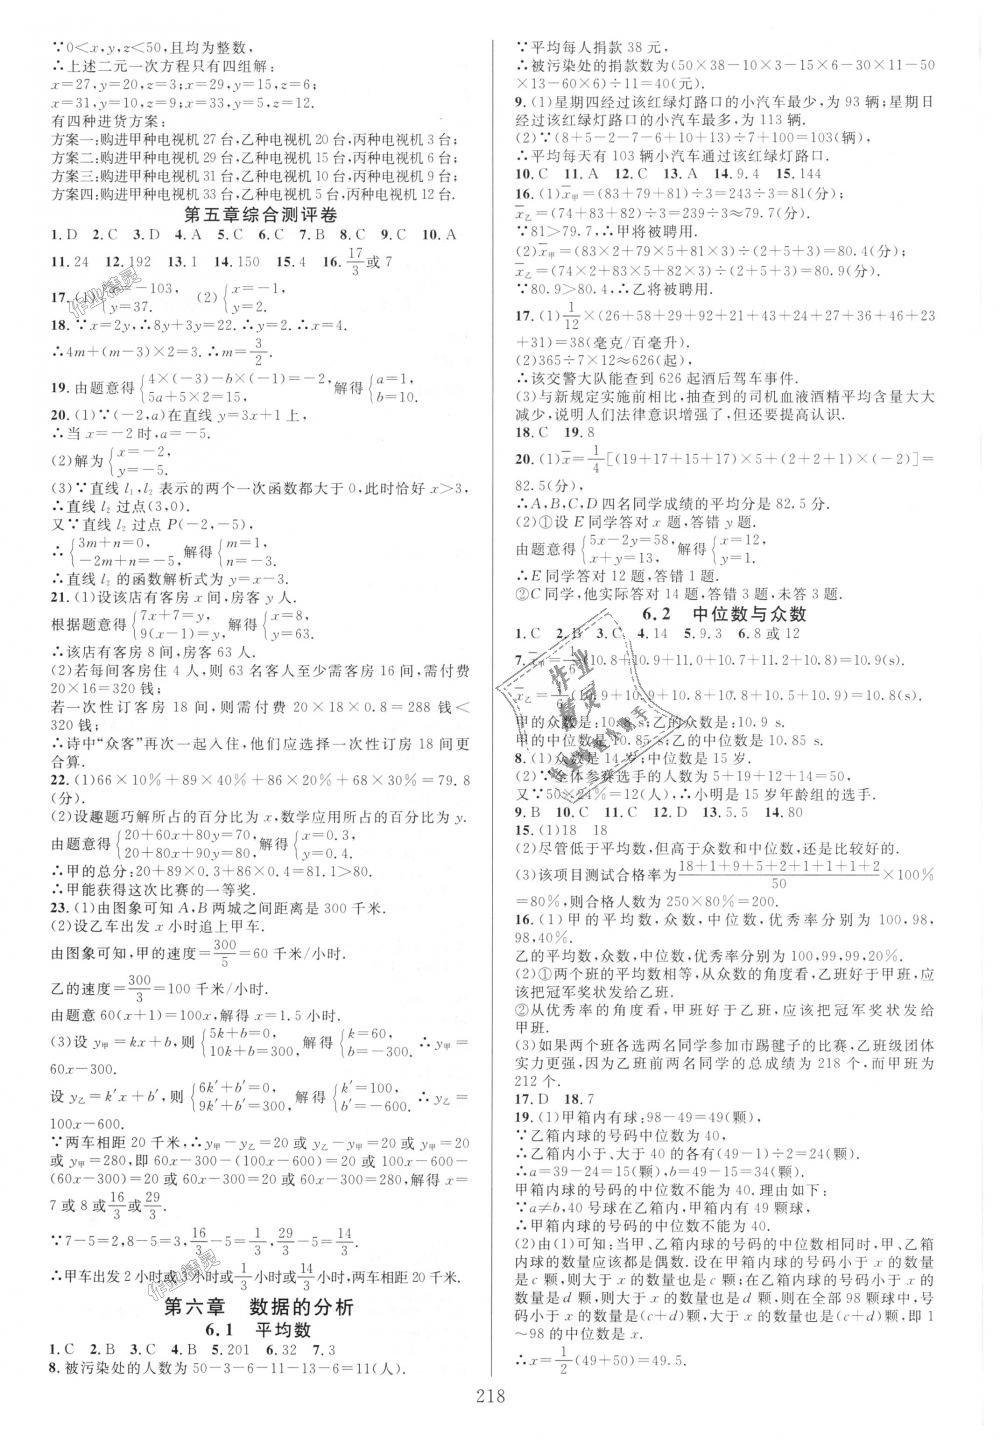 ∵0<x,y,z<50,且均为整数,
∴上述二元一次方程只有四组解:
x=27,y=20,z=3;x=29,y=15,z=6;
x=31,y=10,z=9;x=33,y=5,z=12.
有四种进货方案:
方案一:购进甲种电视机 27 台,乙种电视机 20 台,丙种电视机 3 台;
方案二:购进甲种电视机 29 台,乙种电视机 15 台,丙种电视机 6 台;
方案三:购进甲种电视机 31 台,乙种电视机 10 台,丙种电视机 9 台;
方案四:购进甲种电视机 33 台,乙种电视机 5 台,丙种电视机 12 台.
第五章综合测评卷
1. D 2. C 3. D 4. A 5. C 6. C 7. B 8. C 9. C 10. A
11. 24 12. 192 13. 1 14. 150 15. 4 16. 17/3 或 7
17. (1){x=-103, y=37. (2){x=-1, y=-2.
18. ∵x=2y,∴8y+3y=22.∴y=2.∴x=4.
∴4m+(m-3)×2=3.∴m=3/2.
19. 由题意得{4×(-3)-b×(-1)=-2, 5a+5×2=15, 解得{a=1, b=10.
20. (1)∵(-2,a)在直线 y=3x+1 上,
∴当 x=-2 时,a=-5.
(2)解为{x=-2, y=-5.
(3)∵直线 l₁,l₂ 表示的两个一次函数都大于 0,此时恰好 x>3,
∴直线 l₂ 过点(3,0).
又∵直线 l₂ 过点 P(-2,-5),
∴{3m+n=0, -2m+n=-5, 解得{m=1, n=-3.
∴直线 l₂ 的函数解析式为 y=x-3.
21. (1)设该店有客房 x 间,房客 y 人.
根据题意得{7x+7=y, 9(x-1)=y, 解得{x=8, y=63.
∴该店有客房 8 间,房客 63 人.
(2)若每间客房住 4 人,则 63 名客人至少需客房 16 间,需付费
20×16=320 钱;
若一次性订客房 18 间,则需付费 20×18×0.8=288 钱<
320 钱;
∴诗中“众客”再次一起入住,他们应选择一次性订房 18 间更
合算.
22. (1)66×10%+89×40%+86×20%+68×30%=79.8
(分).
(2)设趣题巧解所占的百分比为 x,数学应用所占的百分比为 y.
由题意得{20+60x+80y=70, 20+80x+90y=80, 解得{x=0.3, y=0.4.
∴甲的总分:20+89×0.3+86×0.4=81.1>80.
∴甲能获得这次比赛的一等奖.
23. (1)由图象可知 A,B 两城之间距离是 300 千米.
(2)设乙车出发 x 小时追上甲车.
由图象可知,甲的速度=300/5=60 千米/小时.
乙的速度=300/3=100 千米/小时.
由题意 60(x+1)=100x,解得 x=1.5 小时.
(3)设 y甲=kx+b,则{5k+b=0, 10k+b=300, 解得{k=60, b=-300. ∴y甲=
60x-300.
设 y乙=k′x+b′,则{6k′+b′=0, 9k′+b′=300, 解得{k′=100, b′=-600. ∴y乙=
100x-600.
∵两车相距 20 千米,∴y甲-y乙=20 或 y乙-y甲=20 或 y甲=20
或 y甲=280,即 60x-300-(100x-600)=20 或 100x-600-
(60x-300)=20 或 60x-300=20 或 60x-300=280,解得 x=
7 或 8 或 16/3 或 29/3.
∵7-5=2,8-5=3,16/3-5=1/3,29/3-5=14/3.
∴甲车出发 2 小时或 3 小时或 1/3 小时或 14/3 小时,两车相距 20 千米.
第六章 数据的分析
6.1 平均数
1. C 2. B 3. C 4. B 5. 201 6. 32 7. 3
8. 被污染处的人数为 50-3-6-11-13-6=11(人).
∵平均每人捐款 38 元,
∴被污染处的捐款数为(50×38-10×3-15×6-30×11-50
×13-60×6)÷11=40(元).
9. (1)星期四经过该红绿灯路口的小汽车最少,为 93 辆;星期日
经过该红绿灯路口的小汽车最多,为 113 辆.
(2)∵(8+5-2-7-6+10+13)÷7+100=103(辆),
∴平均每天有 103 辆小汽车通过该红绿灯路口.
10. C 11. A 12. C 13. 4 14. 9.4 15. 144
16. (1)x̄甲=(83+79+81)÷3=243÷3=81(分);
x̄乙=(74+83+82)÷3≈79.7(分).
∵81>79.7,∴甲将被聘用.
(2)x̄甲=(83×2+79×5+81×3)÷(2+5+3)=80.4(分);
x̄乙=(74×2+83×5+82×3)÷(2+5+3)=80.9(分).
∵80.9>80.4,∴乙将被聘用.
17. (1)1/12×(26+58+29+92+21+43+24+27+36+46+23
+31)=38(毫克/百毫升).
(2)365÷7×12≈626(起),
∴该交警大队能查到 626 起酒后驾车事件.
(3)与新规定实施前相比,抽查到的司机血液酒精平均含量大大
减少,说明人们法律意识增强了,但还要提高认识.
18. C 19. 8
20. (1)x̄=1/4[(19+17+15+17)×5+(2+2+1)×(-2)]=
82.5(分),
∴A,B,C,D 四名同学成绩的平均分是 82.5 分.
(2)①设 E 同学答对 x 题,答错 y 题.
由题意得{5x-2y=58, x+y=13, 解得{x=12, y=1.
∴E 同学答对 12 题,答错 1 题.
②C 同学,他实际答对 14 题,答错 3 题,未答 3 题.
6.2 中位数与众数
1. C 2. B 3. C 4. 14 5. 9.3 6. 8 或 12
7. x̄甲=1/6(10.8+10.9+11.0+10.7+11.2+10.8)=10.9(s).
x̄乙=1/6(10.9+10.9+10.8+10.8+10.5+10.9)=10.8(s).
甲的众数是:10.8 s;乙的众数是:10.9 s.
甲的中位数是:10.85 s;乙的中位数是:10.85 s.
8. (1)众数是 14 岁;中位数是 15 岁.
(2)∵全体参赛选手的人数为 5+19+12+14=50,
又∵50×24%=12(人),∴小明是 15 岁年龄组的选手.
9. B 10. C 11. C 12. D 13. 5.5 14. 80
15. (1)18 18
(2)尽管低于平均数,但高于众数和中位数,还是比较好的.
(3)该项目测试合格率为(18+1+9+5+2+1+1+1+2)/50×100%
=80%,则合格人数为 250×80%=200.
16. (1)甲的平均数,众数,中位数,优秀率分别为 100,98,
98,40%.
乙的平均数,众数,中位数,优秀率分别为 100,99,99,20%.
(2)①两个班的平均数相等,从众数的角度看,乙班好于甲班,应
该把冠军奖状发给乙班.
②从优秀率的角度看,甲班好于乙班,应该把冠军奖状发给
甲班.
(3)如果两个班各选两名同学参加市踢毽子的比赛,乙班级团体
实力更强,因为乙班前两名同学的总成绩为 218 个,而甲班为
212 个.
17. D 18. 7
19. (1)甲箱内有球:98-49=49(颗),
∵乙箱内球的号码中位数为 40,
∴乙箱内小于、大于 40 的各有(49-1)÷2=24(颗).
∴a=39-24=15(颗),b=49-15=34(颗).
甲箱内球的号码的中位数不能为 40.理由如下:
∵a≠b,40 号球在乙箱内,甲箱内有 49 颗球,
∴甲箱内球的号码的中位数不能为 40.
(2)由(1)可知:当甲、乙箱内球的号码的中位数相同时,甲、乙箱
内球的数量应该都是偶数.设在甲箱内球的号码小于 x 的数量
是 c 颗,则大于 x 的数量也是 c 颗;在乙箱内球的号码小于 x 的
数量是 d 颗,则大于 x 的数量是 d 颗,则在全部 98 颗球中,号
码小于 x 的数量是(c+d)颗,大于 x 的数量是(c+d)颗,即 1
~98 的中位数是 x.
∴x=1/2(49+50)=49.5.
218
作业精灵
作业精灵
作业精灵